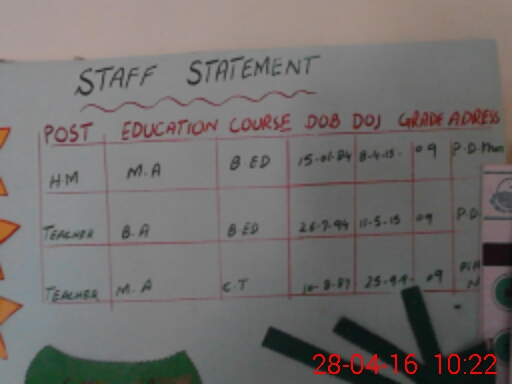 STAFF STATEMENT
POST EDUCATION COURSE DOB DOJ GRADE ADRESS
HM M.A B.ED 15-01-84 8-4-13- 09 P.D.
TEACHER B.A B.ED 26-7-94 11-5-15 09 P.D.
TEACHER M.A C.T 10-8-87 09
28-04-16 10:22